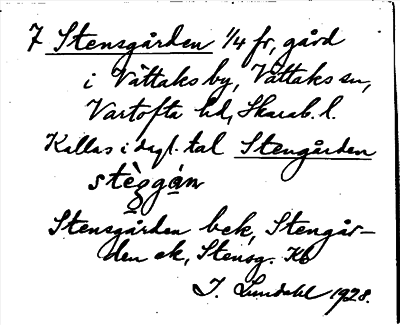 7 Stensgården 1/4 fr, gård
i Vättaks by, Vättaks sn,
Vartofta hd, Skarab. l.
Kallas i dagl. tal Stengården
stèggán
Stensgården bek, Stengår-
den ak, Stensg. Kb
I. Lundahl 1928.